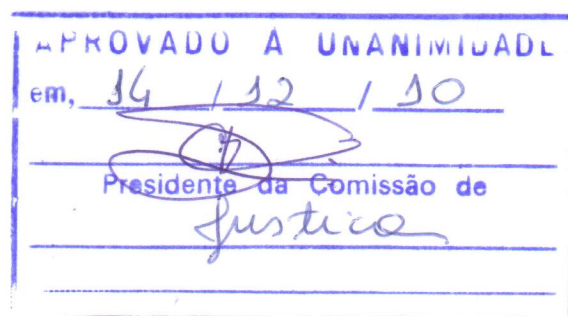 APROVADO A UNANIMIDADE
em, 14 / 12 / 10
Presidente da Comissão de
Justica